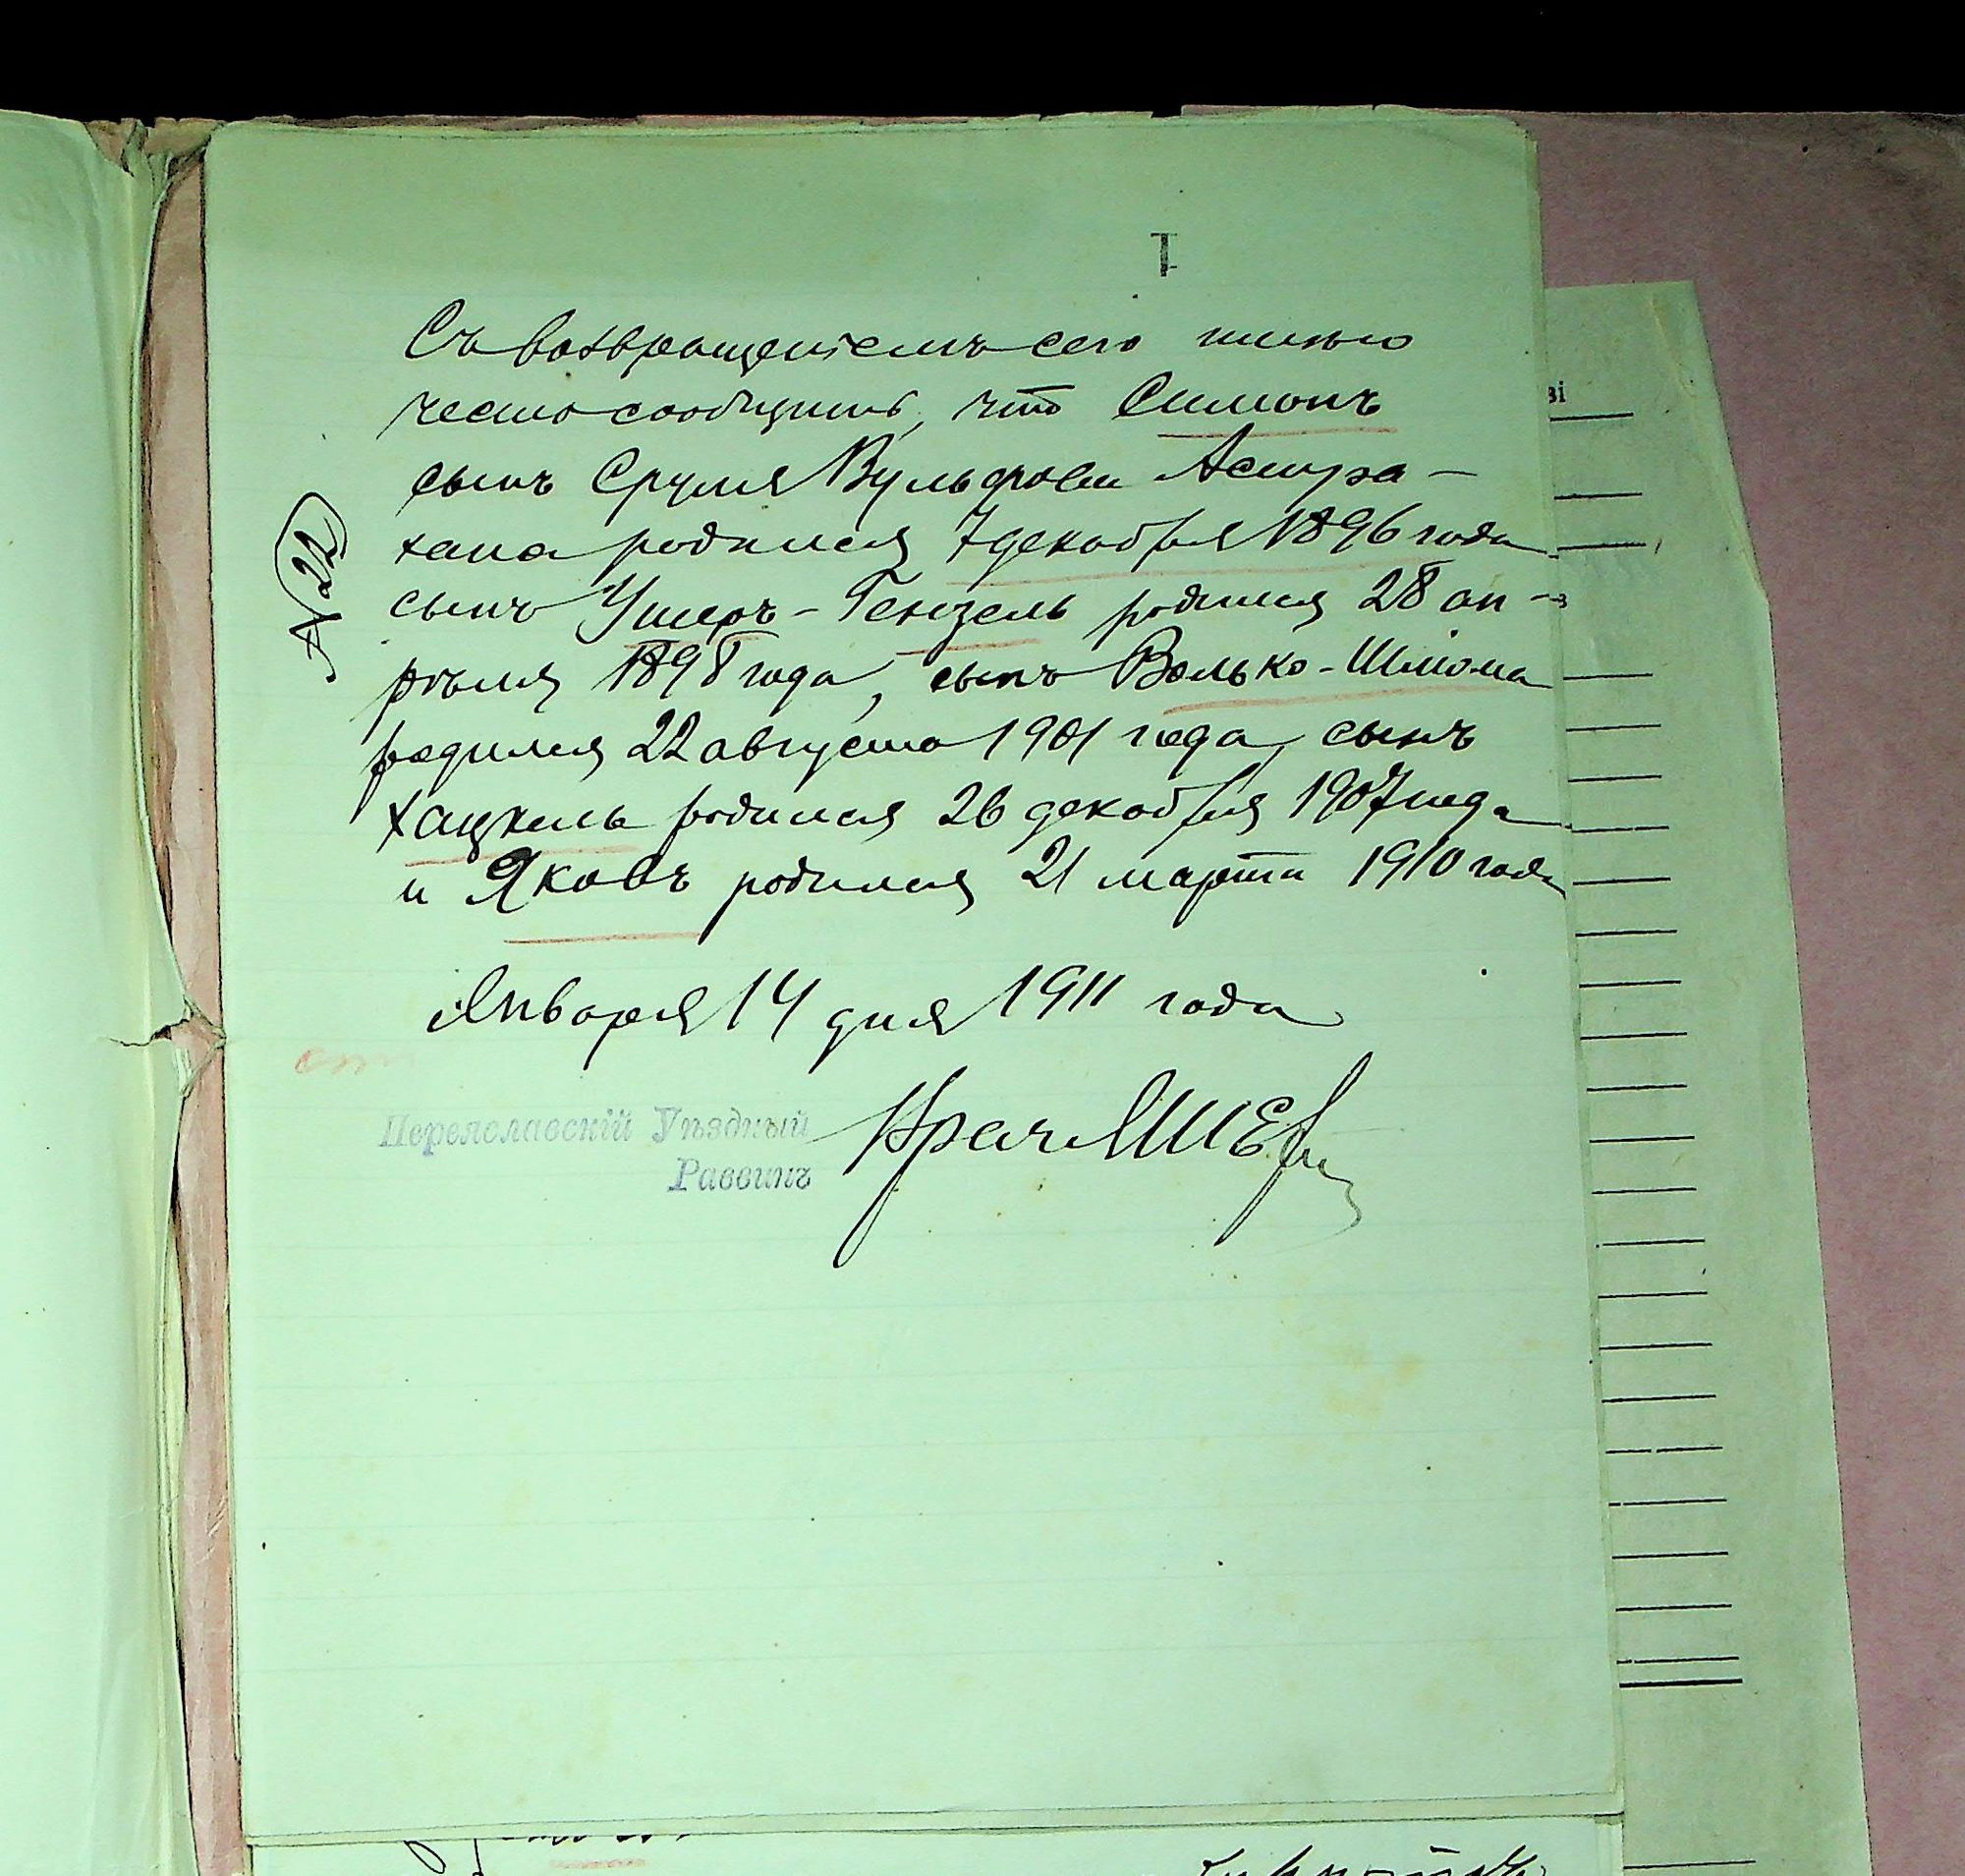 Съ возвращеніемъ сего имѣю
честь сообщить, что Симонъ
сынъ Сруля Вульфова Астра-
хана родился 7 декабря 1896 года
сынъ Ушеръ-Гензель родился 28 ап-
рѣля 1898 года, сынъ Волько-Шлома
родился 22 августа 1901 года, сынъ
Хацкель родился 26 декабря 1907 года
и Яковъ родился 21 марта 1910 года
№ 22
Января 14 дня 1911 года
Переяславскій Уѣздный
Раввинъ